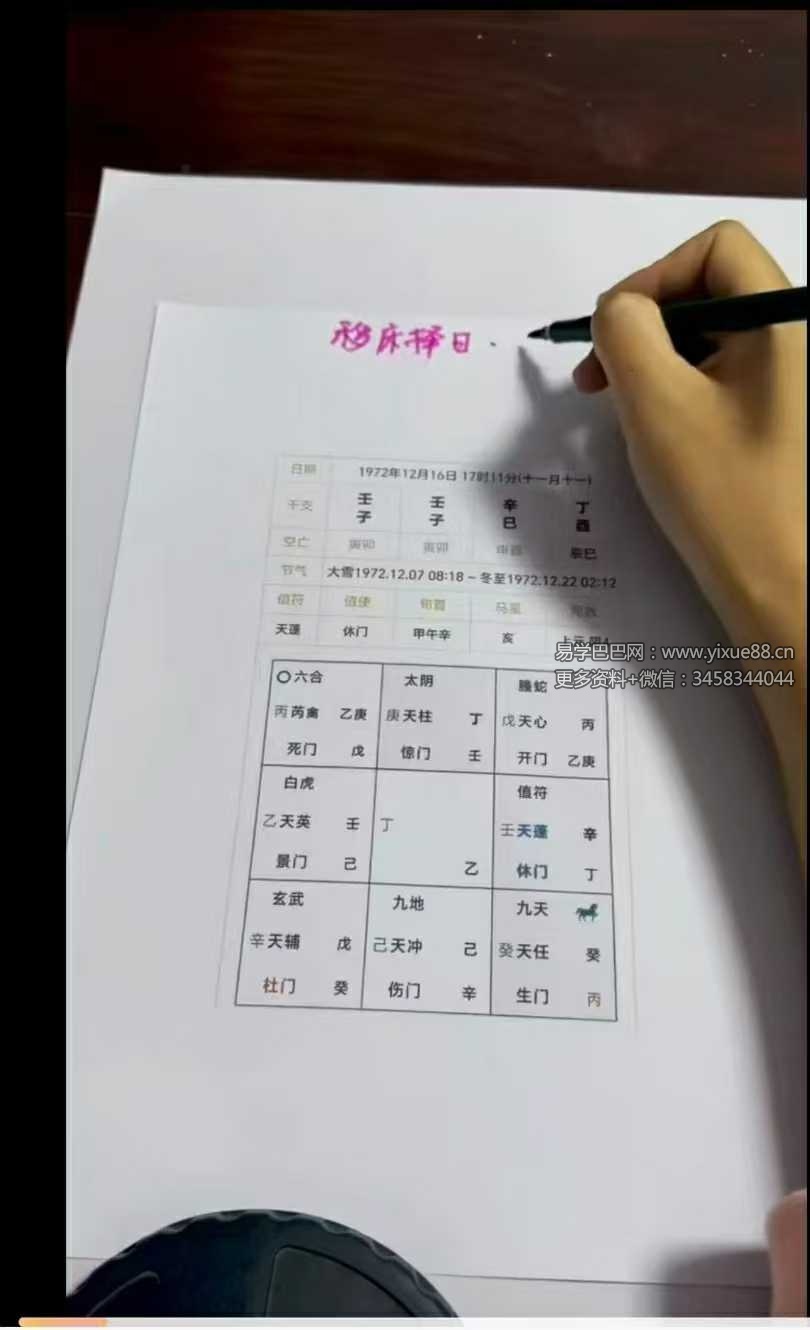 移床择日.
日期 1972年12月16日 17时11分(十一月十一)
干支 壬子 壬子 辛巳 丁酉
空亡 寅卯 寅卯 申酉 辰巳
节气 大雪1972.12.07 08:18 ~ 冬至1972.12.22 02:12
值符 值使 旬首 马星
天蓬 休门 甲午辛 亥
易学巴巴网：www.yixue88.cn
更多资料+微信：3458344044
六合 太阴 螣蛇
丙芮禽 乙庚 庚天柱 丁 戊天心 丙
死门 戊 惊门 壬 开门 乙庚
白虎 值符
乙天英 壬 丁 壬天蓬 辛
景门 己 乙 休门 丁
玄武 九地 九天
辛天辅 戊 己天冲 己 癸天任 癸
杜门 癸 伤门 辛 生门 丙